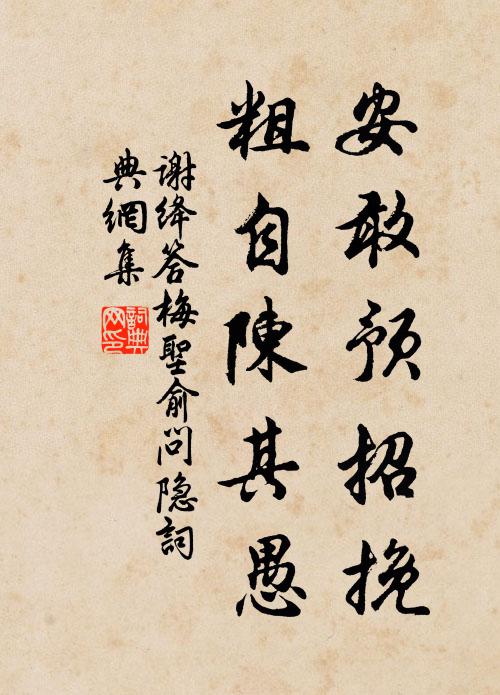 安敢预招挽
粗自陳其愚
谢绛答梅聖俞问隐詞
典網集
詞典网印